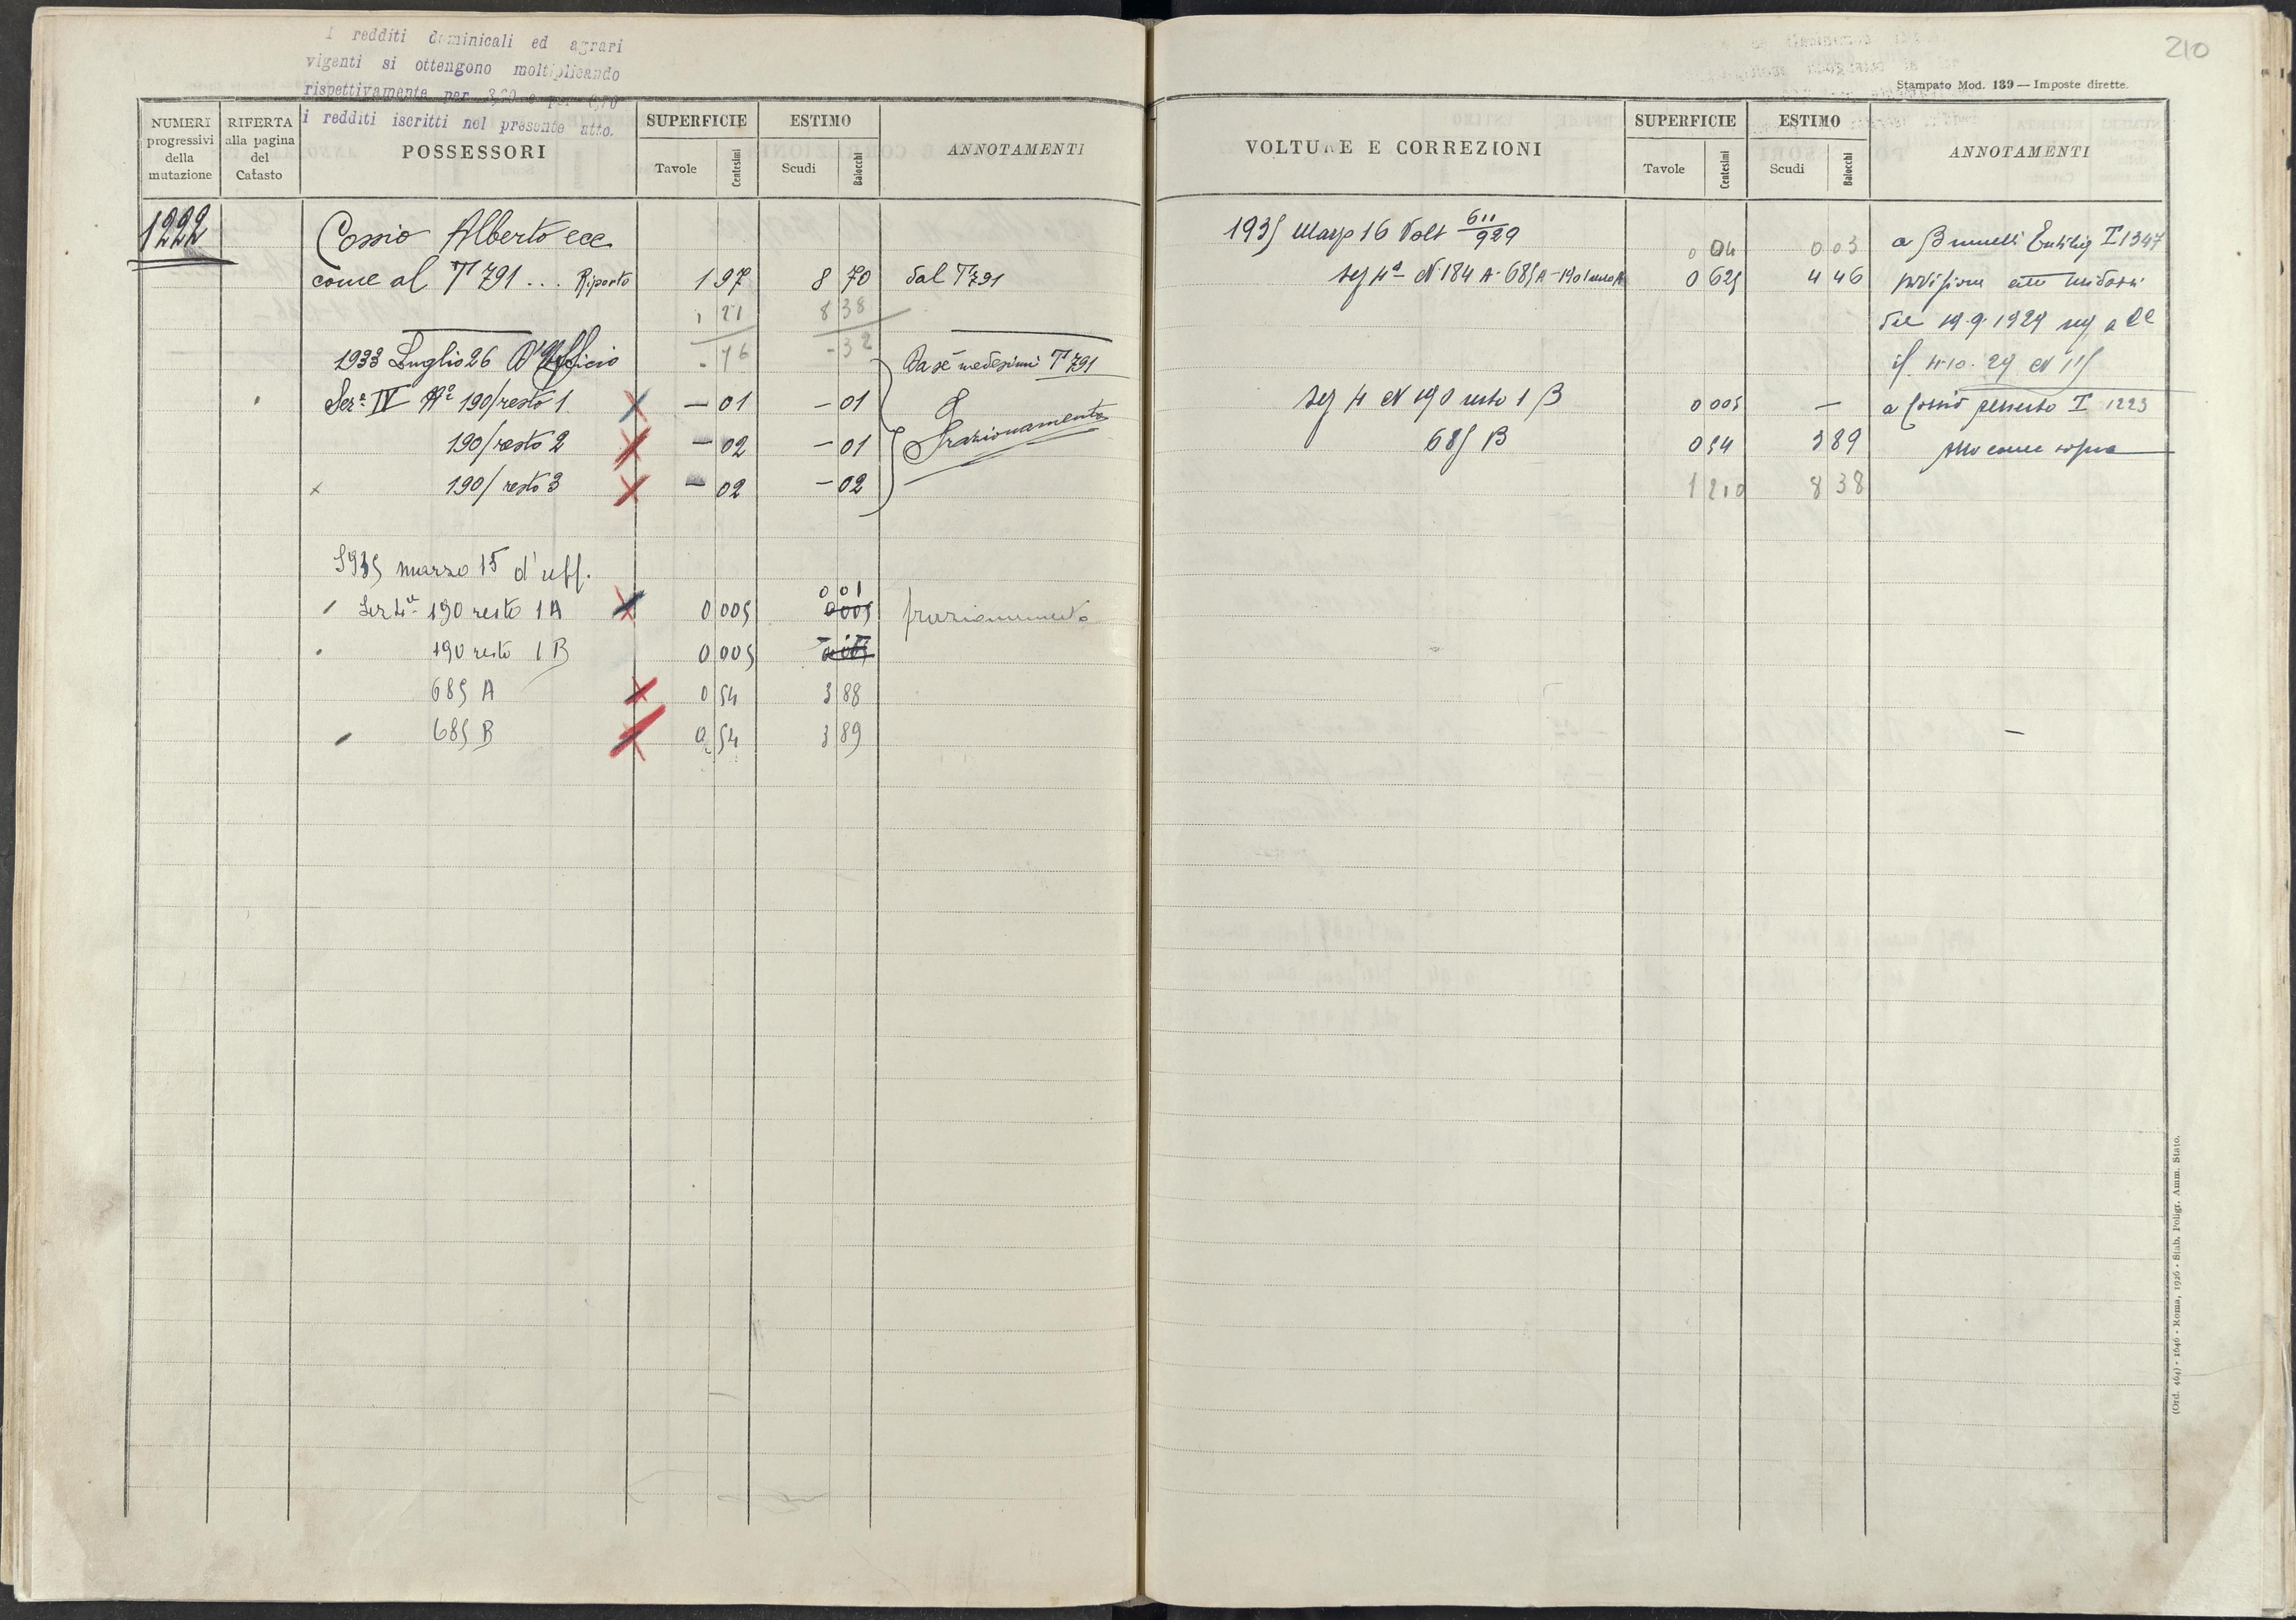 I redditi dominicali ed agrari
vigenti si ottengono moltiplicando
rispettivamente per 3,20 e per
i redditi iscritti nel presente atto.
NUMERI progressivi della mutazione
RIFERTA alla pagina del Catasto
POSSESSORI
SUPERFICIE
Tavole
Centesimi
ESTIMO
Scudi
Baiocchi
ANNOTAMENTI
1222 Cossio Alberto ecc
come al T 791 . . . Riporto 1 97 8 70 dal T 791
1 21 8 38
- 76 - 32
1933 Luglio 26 D'Ufficio Da se medesimi T 791
Sez.e IV No 190/resto 1 — 01 — 01 Frazionamento
190/resto 2 — 02 — 01
190/resto 3 — 02 — 02
1935 marzo 15 d'uff.
Sez 4a 190 resto 1 A 0 005 0 01 frazionamento
190 resto 1 B 0 005
685 A 0 54 3 88
685 B 0 54 3 89
210
Stampato Mod. 139 — Imposte dirette.
VOLTURE E CORREZIONI
SUPERFICIE
Tavole
Centesimi
ESTIMO
Scudi
Baiocchi
ANNOTAMENTI
1935 Marzo 16 Volt 611/929 0 04 0 03 a Brunelli T 1347
sez 4a N 184 A - 685 A - 190 0 625 4 46 divisione atto
del 19.9.1929 reg a
il 4.10.29 N 115
sez 4 N 190 resto 1 B 0 005 — a Cossio T 1223
685 B 0 54 3 89 atto come sopra
1 210 8 38
(Ord. 464) - 1646 - Roma, 1926 - Stab. Poligr. Amm. Stato.